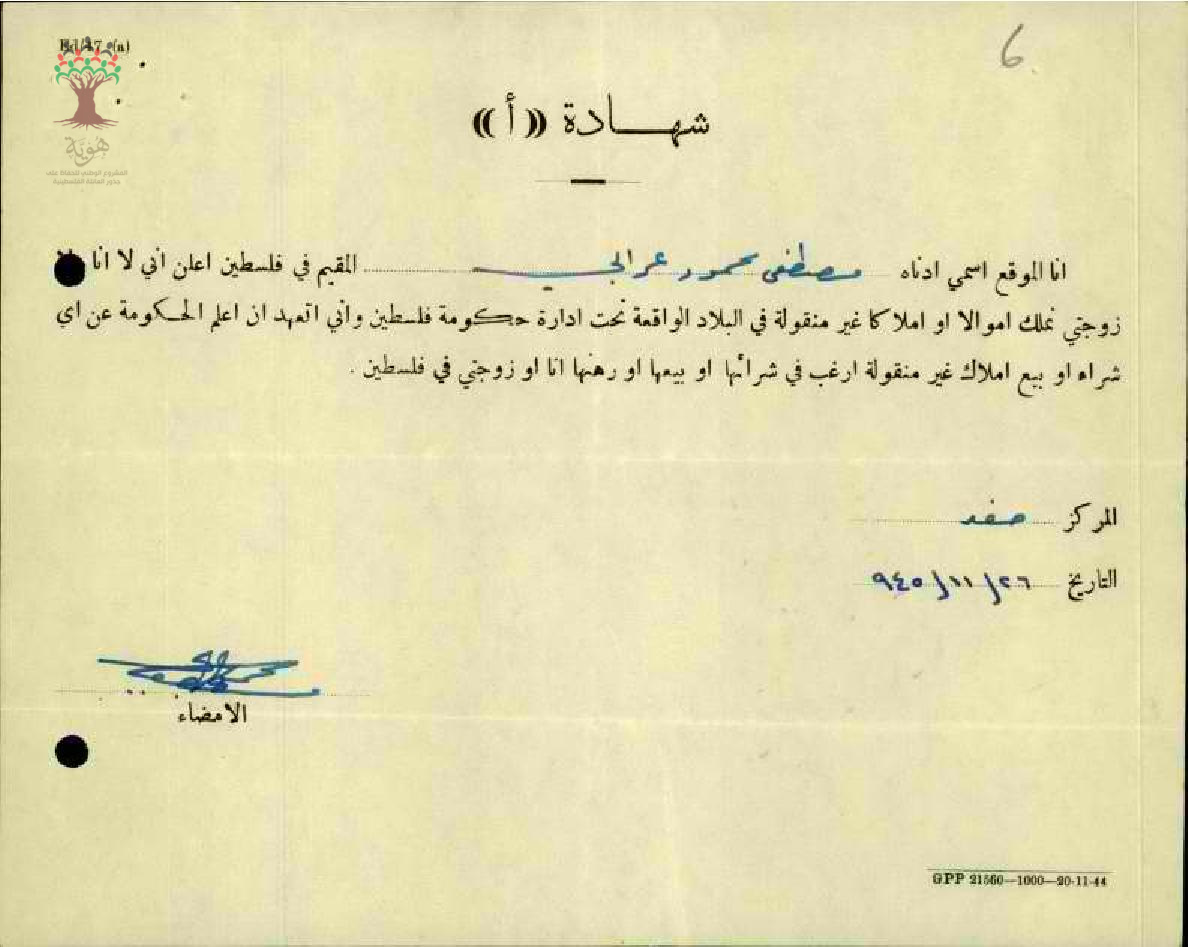 Ed/47 (a)
6
هوية
المشروع الوطني للحفاظ على
جذور العائلة الفلسطينية
شهـــادة ((أ))
انا الموقع اسمي ادناه مصطفى محمود عرالجي المقيم في فلسطين اعلن أني لا انا ولا
زوجتي نملك اموالا او املاكا غير منقولة في البلاد الواقعة تحت ادارة حكومة فلسطين واني اتعهد ان اعلم الحكومة عن اي
شراء او بيع املاك غير منقولة ارغب في شرائها او بيعها او رهنها انا او زوجتي في فلسطين .
المركز صفد
التاريخ ٢٦/١١/٩٤٥
الامضاء
GPP 21560—1000—20-11-44